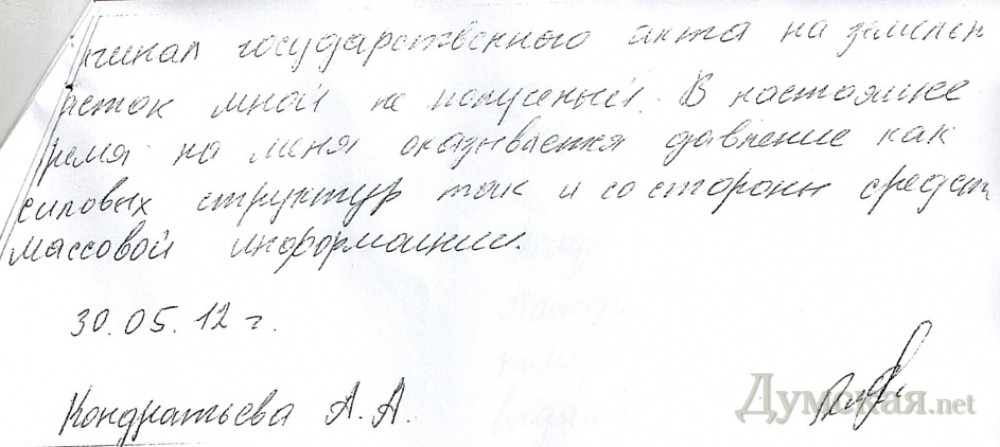 ригинал государственного акта на земельн
асток мной не полученый. В настоящее
ремя на меня оказывается давление как
силовых структур так и со стороны средст
массовой информации.
30.05.12 г.
Кондратьева А. А.
Думская.net